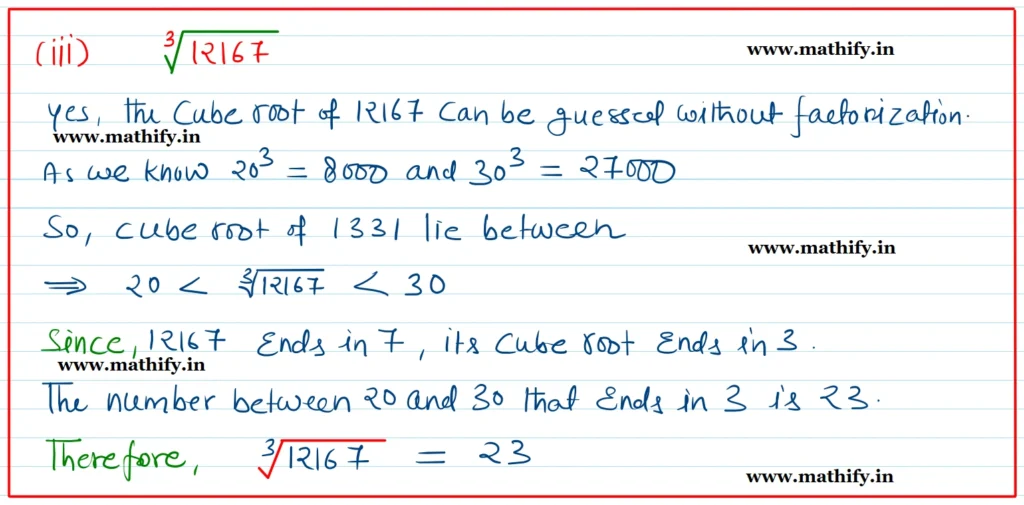 (iii) ∛12167 www.mathify.in
Yes, the Cube root of 12167 Can be guessed without factorization.
www.mathify.in
As we know 20³ = 8000 and 30³ = 27000
So, cube root of 1331 lie between
www.mathify.in
⟹ 20 < ∛12167 < 30
Since, 12167 Ends in 7, its Cube root Ends in 3.
www.mathify.in
The number between 20 and 30 that Ends in 3 is 23.
Therefore, ∛12167 = 23
www.mathify.in